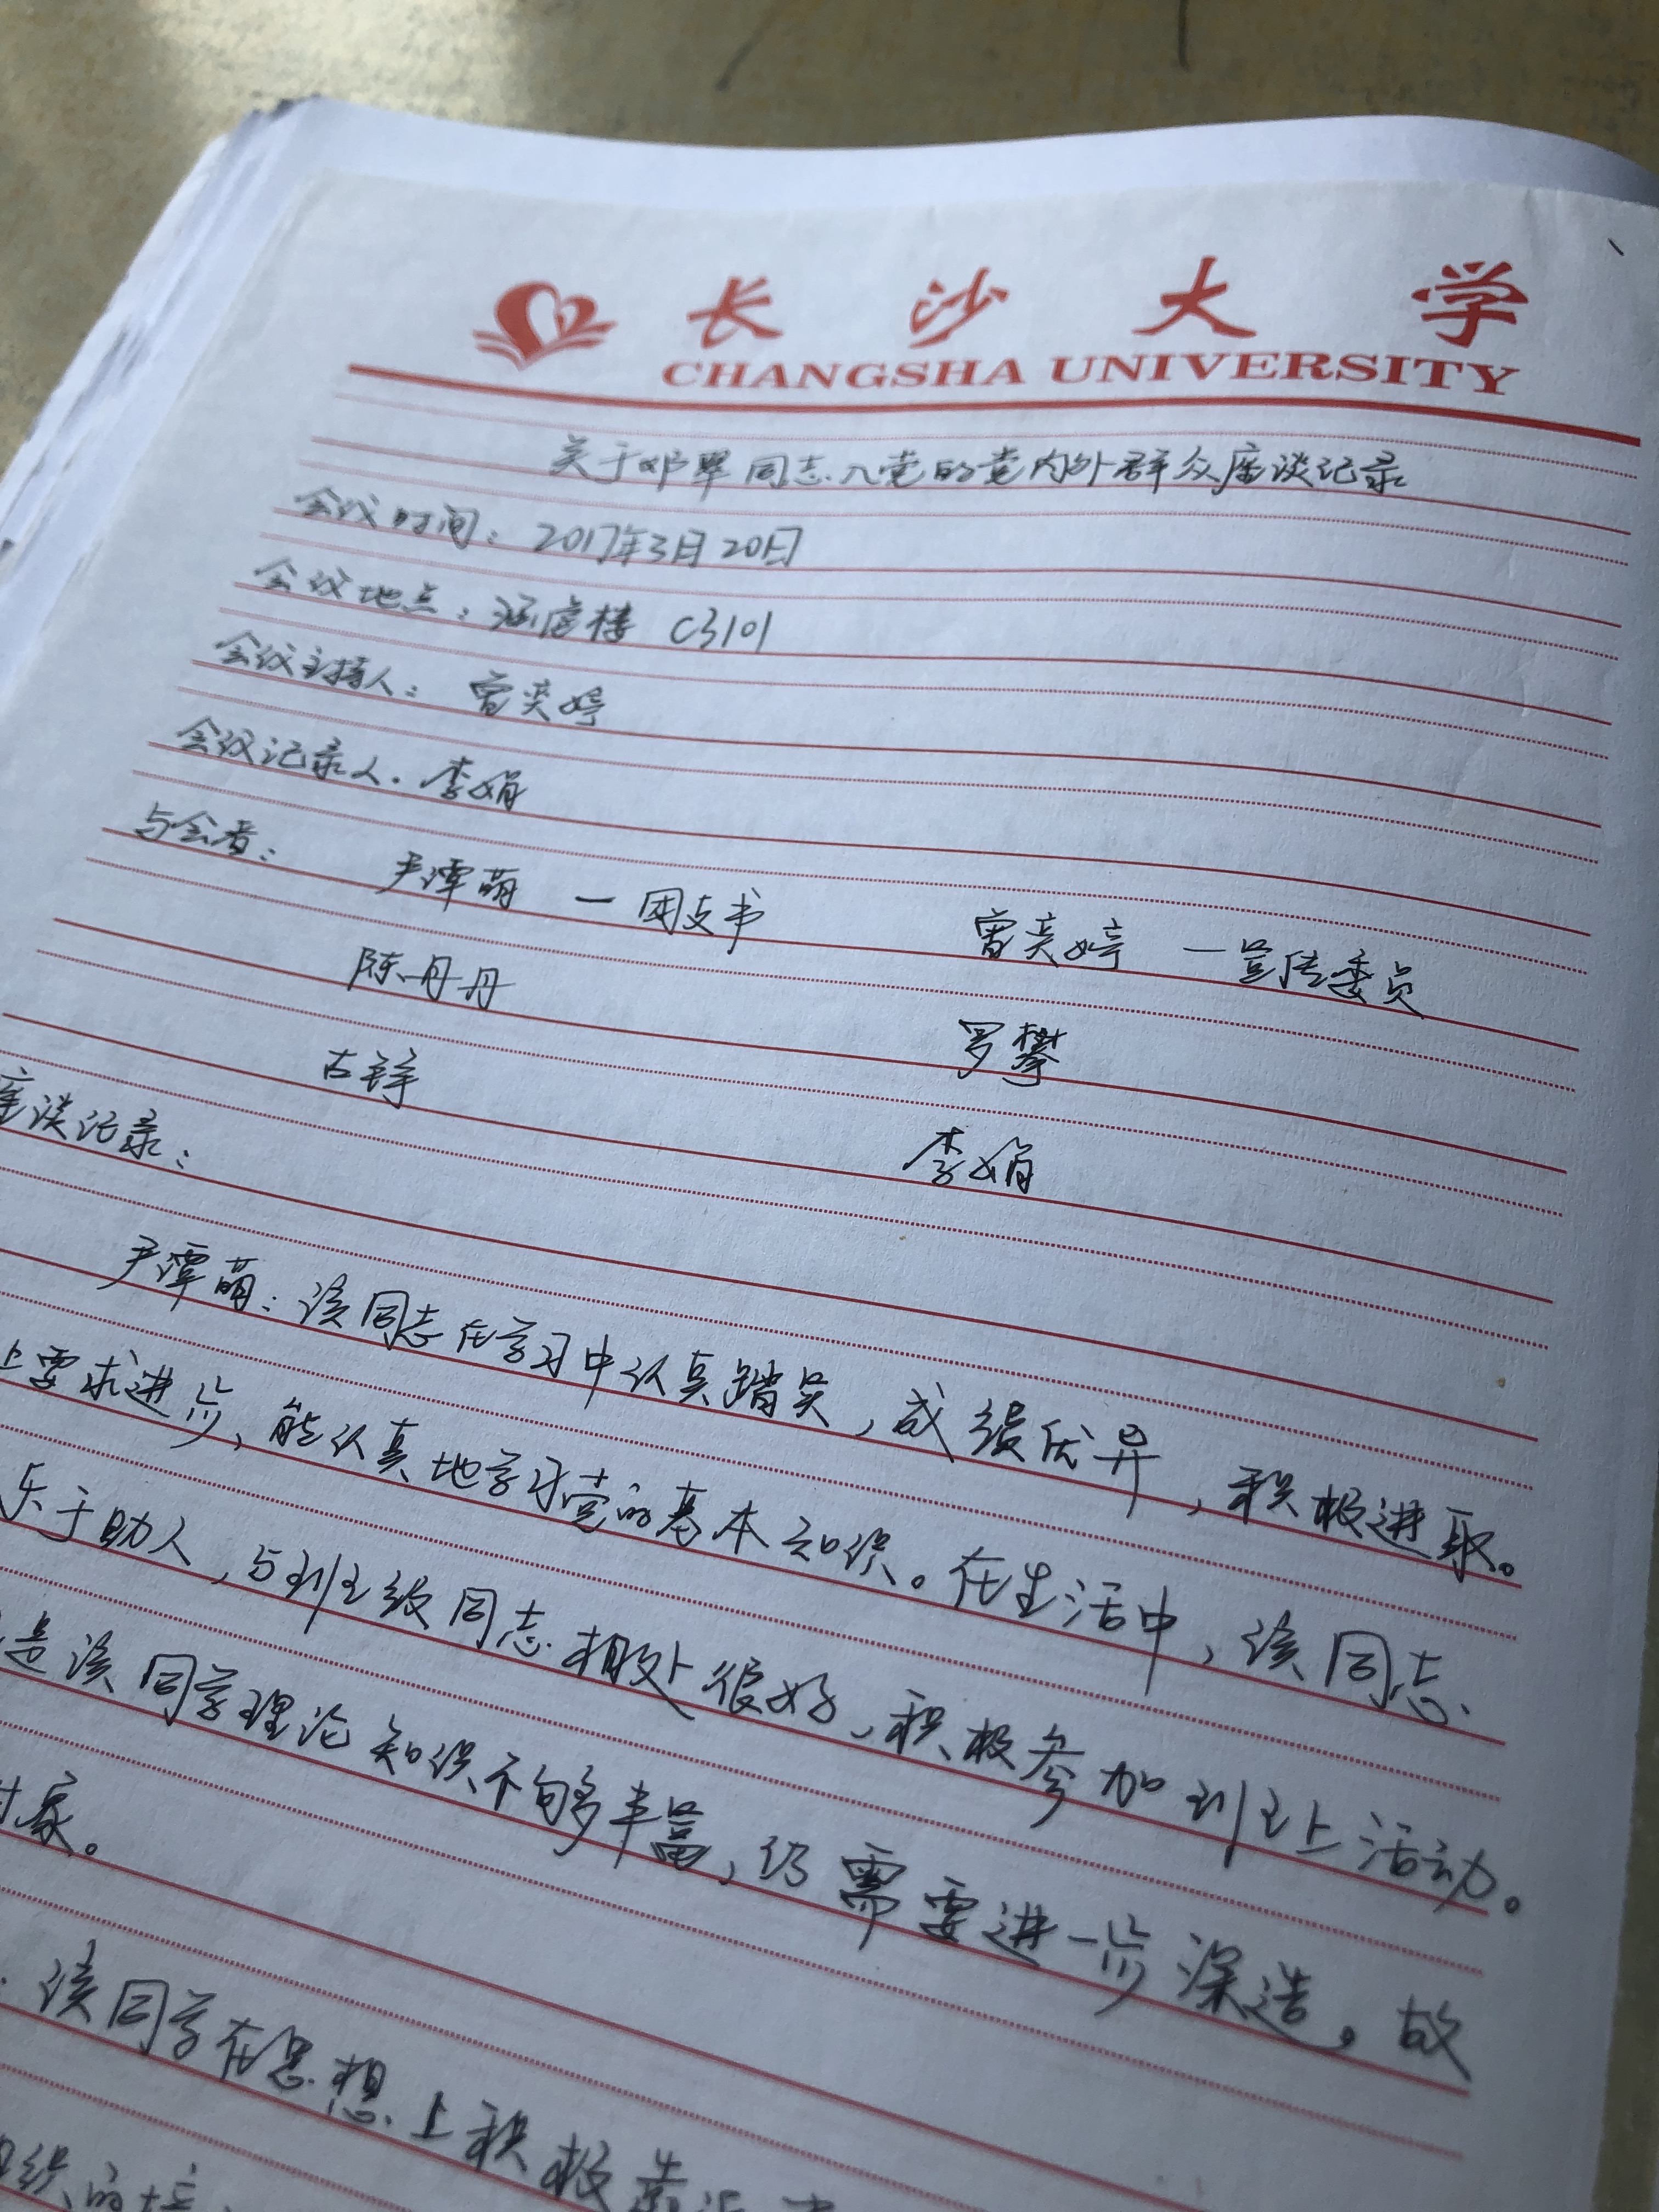 长沙大学
CHANGSHA UNIVERSITY
关于邓翠同志入党的党内外群众座谈记录
会议时间：2017年3月20日
会议地点：涵虚楼 C3101
会议主持人：曾奕婷
会议记录人：李娟
与会者：尹谭萌 — 团支书 曾奕婷 — 宣传委员
陈丹丹 罗攀
古锋 李娟
座谈记录：
尹谭萌：该同志在学习中认真踏实，成绩优异，积极进取。
上要求进步，能认真地学习党的基本知识。在生活中，该同志
乐于助人，与班级同志相处很好，积极参加班上活动。
是该同学理论知识不够多丰富，仍需要进一步深造。故
家。
该同学在思想上积极靠
组织的培